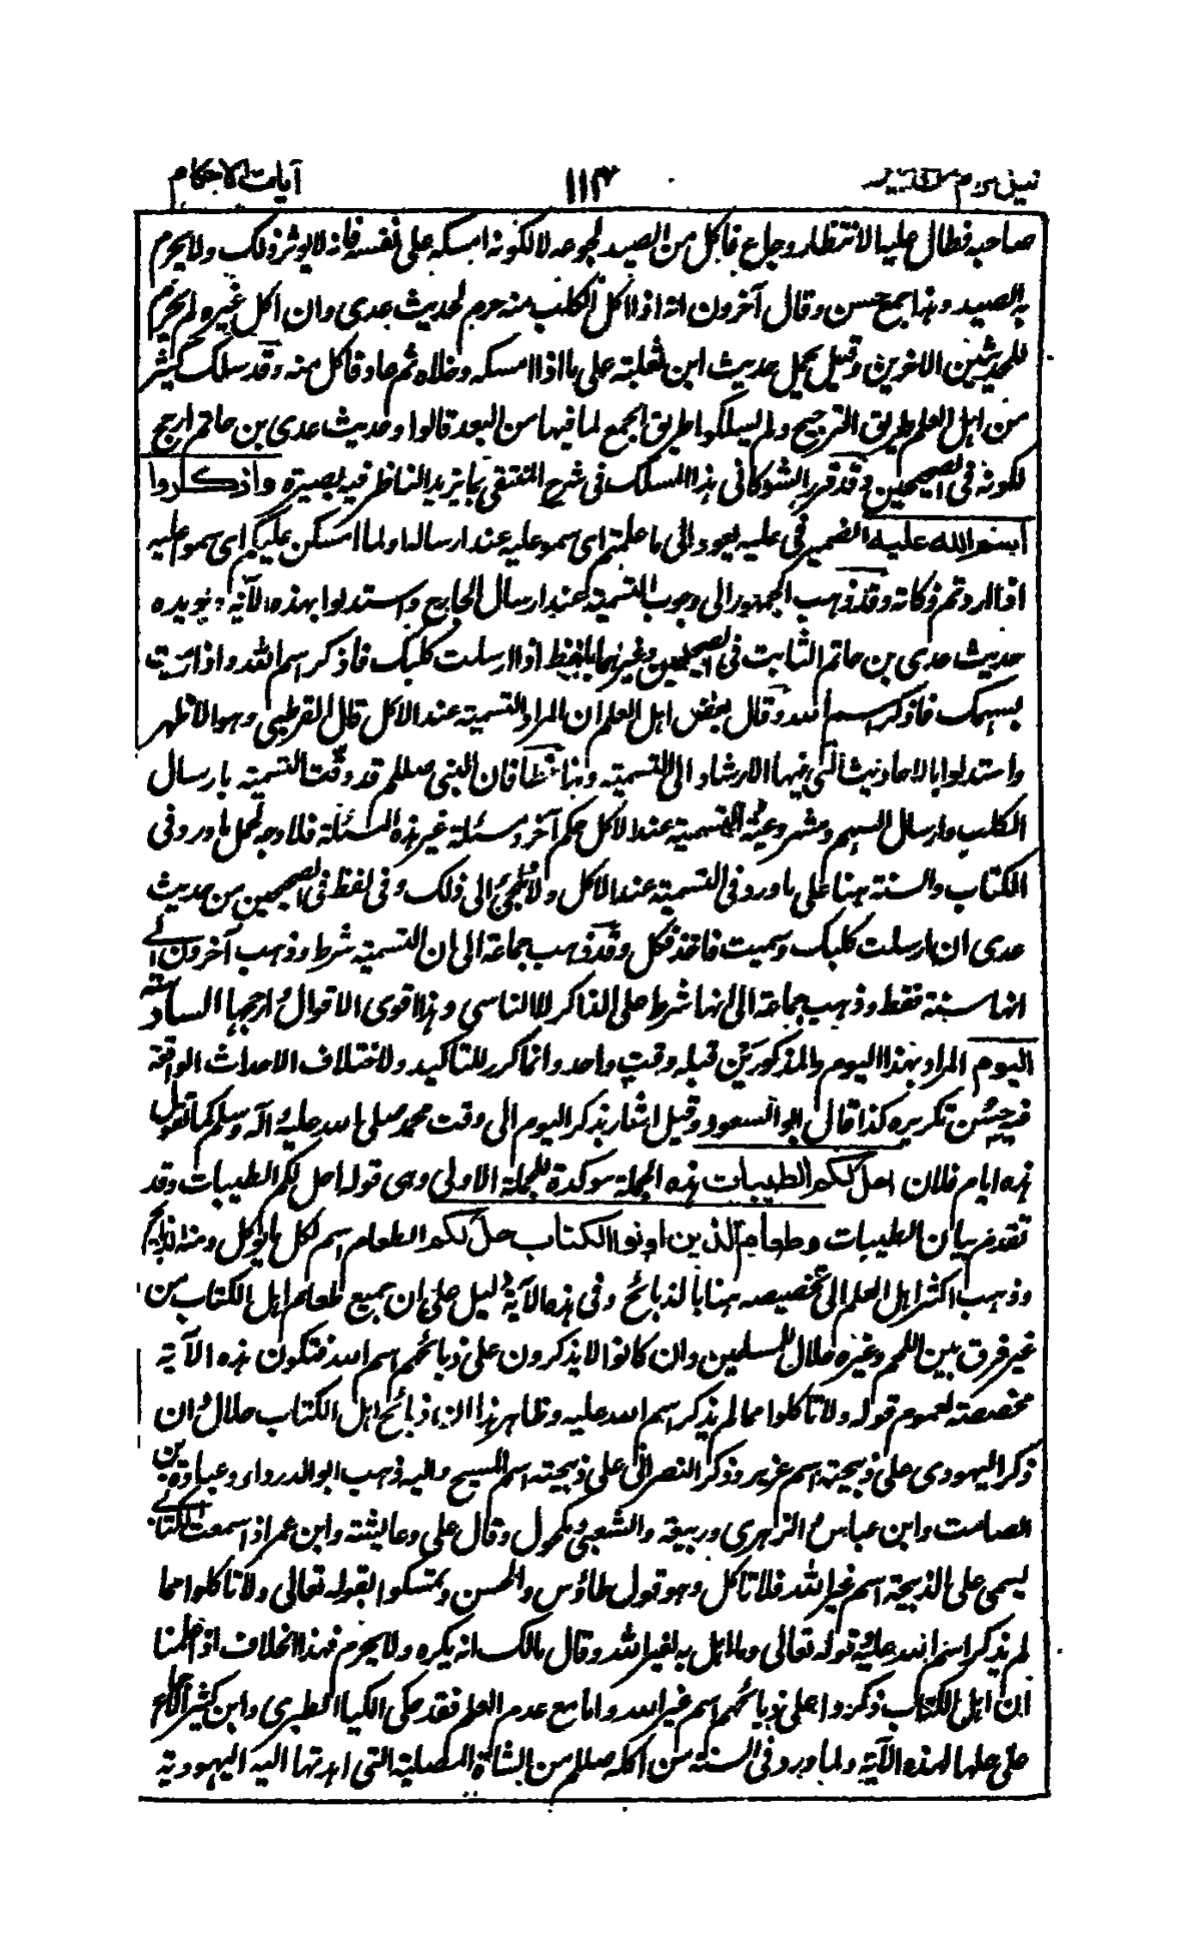 آيات الاحكام ١١٣ نيل المرام من تفسير
صاحبه فطال عليه الانتظار وجاع فاكل من الصيد لجوعه لا لكونه امسكه على نفسه فانه لا يوثر ذلك ولا يحرم
به الصيد وهذا جمع حسن وقال آخرون انه اذا اكل الكلب منه حرم لحديث عدى وان اكل غيره لم يحرم
للحديثين الاخرين وقيل يحمل حديث ابى ثعلبة على ما اذا امسكه وخلاه ثم عاد فاكل منه وقد سلك كثير
من اهل العلم طريق الترجيح ولم يسلكوا طريق الجمع لما فيها من البعد قالوا وحديث عدى بن حاتم ارجح
لكونه فى الصحيحين وقد قرر الشوكانى هذا المسلك فى شرح المنتقى بما يزيد الناظر فيه بصيرة واذكروا
اسم الله عليه الضمير فى عليه يعود الى ما علمتم اى سموا عليه عند ارساله او لما امسكن عليكم اى سموا عليه
اذا اردتم ذكاته وقد ذهب الجمهور الى وجوب التسمية عند ارسال الجارح واستدلوا بهذه الآية ويؤيده
حديث عدى بن حاتم الثابت فى الصحيحين وغيرهما بلفظ اذا ارسلت كلبك فاذكر اسم الله واذا رميت
بسهمك فاذكر اسم الله وقال بعض اهل العلم ان المراد التسمية عند الاكل قال القرطبى وهو الاظهر
واستدلوا بالاحاديث التى فيها الارشاد الى التسمية وهذا خطأ فان النبى صللم قد وقت التسمية بارسال
الكلب وارسال السهم ومشروعية التسمية عند الاكل حكم آخر ومسئلة غير هذه المسئلة فلا وجه لحمل ما ورد فى
الكتاب والسنة ههنا على ما ورد فى التسمية عند الاكل ولا ملجئ الى ذلك وفى لفظ فى الصحيحين من حديث
عدى ان ارسلت كلبك وسميت فاخذ فكل وقد ذهب جماعة الى ان التسمية شرط وذهب آخرون الى
انها سنة فقط وذهب جماعة الى انها شرط على الذاكر لا الناسى وهذا اقوى الاقوال وارجحها السادسة
اليوم المراد بهذا اليوم والمذكورين قبله وقت واحد وانما كرر للتاكيد ولاختلاف الاحداث الواقعة
فيه حسن تكريره كذا قال ابو السعود وقيل اشار بذكر اليوم الى وقت محمد صلى الله عليه وآله وسلم كما تقول
هذه ايام فلان احل لكم الطيبات هذه الجملة موكدة للجملة الاولى وهى قوله احل لكم الطيبات وقد
تقدم بيان الطيبات وطعام الذين اوتوا الكتاب حل لكم الطعام اسم لكل ما يوكل ومنه الذبائح
وذهب اكثر اهل العلم الى تخصيصه هنا بالذبائح وفى هذه الآية دليل على ان جميع طعام اهل الكتاب من
غير فرق بين اللحم وغيره حلال للمسلمين وان كانوا لا يذكرون على ذبائحهم اسم الله فتكون هذه الآية
مخصصة لعموم قوله ولا تاكلوا مما لم يذكر اسم الله عليه وظاهر هذا ان ذبائح اهل الكتاب حلال وان
ذكر اليهودى على ذبيحته اسم عزير وذكر النصرانى على ذبيحته اسم المسيح واليه ذهب ابو الدرداء وعبادة بن
الصامت وابن عباس والزهرى وربيعة والشعبى ومكحول وقال على وعائشة وابن عمر اذا سمعت الكتابى
يسمى على الذبيحة اسم غير الله فلا تاكل وهو قول طاؤس والحسن وتمسكوا بقوله تعالى ولا تاكلوا مما
لم يذكر اسم الله عليه وقوله تعالى وما اهل به لغير الله وقال مالك انه يكره ولا يحرم فهذا الخلاف اذا علمنا
ان اهل الكتاب ذكروا على ذبائحهم اسم غير الله واما مع عدم العلم فقد حكى الكيا الطبرى وابن كثير الاجماع
على حلها لهذه الآية ولما ورد فى السنة من اكله صللم من الشاة المصلية التى اهدتها اليه اليهودية